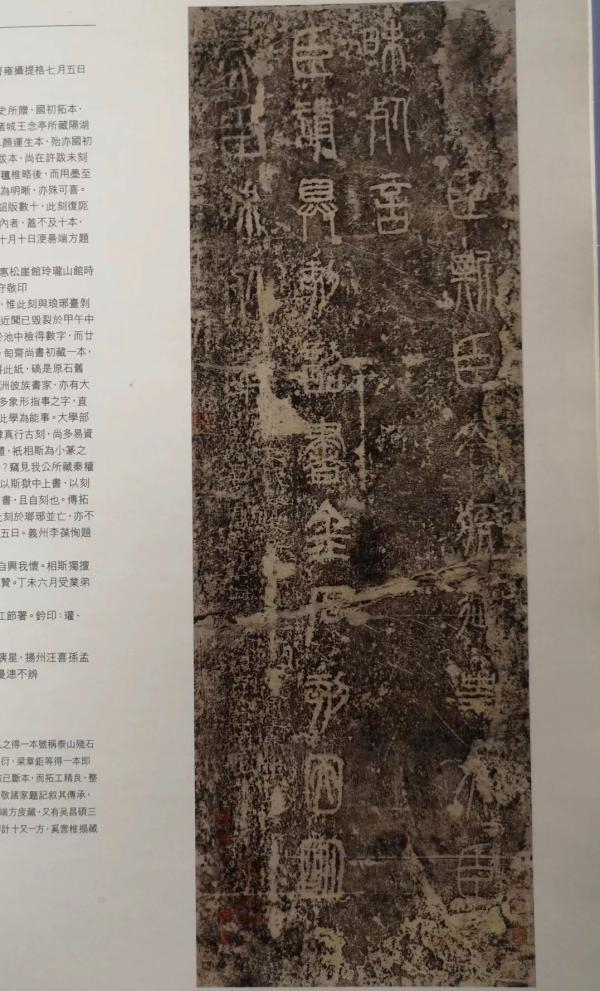 臣斯臣去疾御史夫臣
昧死言
臣請具刻詔書金石刻因明白
矣臣昧死請
雍攝提格七月五日
史所贈，國初拓本，
諸城王念亭所藏陽湖
顏運生本，殆亦國初
版本，尚在許跋未刻
氊椎略後，而用墨至
為明晰，亦殊可喜。
詔版數十，此刻復戹
內者，蓋不及十本，
十月十日浭昜端方題
惠松崖館玲瓏山館時
守敬印
，惟此刻與琅琊臺剝
近聞已毀裂於甲午中
於池中檢得數字，而廿
匋齋尚書初藏一本，
得此紙，碻是原石舊
洲彼族書家，亦有大
多象形指事之字，直
此學為能事。大學部
真行古刻，尚多易資
，衹相斯為小篆之
？竊見我公所藏秦權
以斯獄中上書，以刻
書，且自刻也。傳拓
刻於瑯琊並亡，亦不
五日。義州李葆恂題
自興我懷。相斯獨擅
贊。丁未六月受業弟
江節署。鈐印：瓘、
演星、揚州汪喜孫孟
曼漶不辨
之得一本號稱泰山殘石
衍，梁章鉅等得一本即
已斷本，而拓工精良，整
敬諸家題記叙其傳承，
端方庋藏，又有吴昌碩三
計十又一方，奚啻椎搨藏